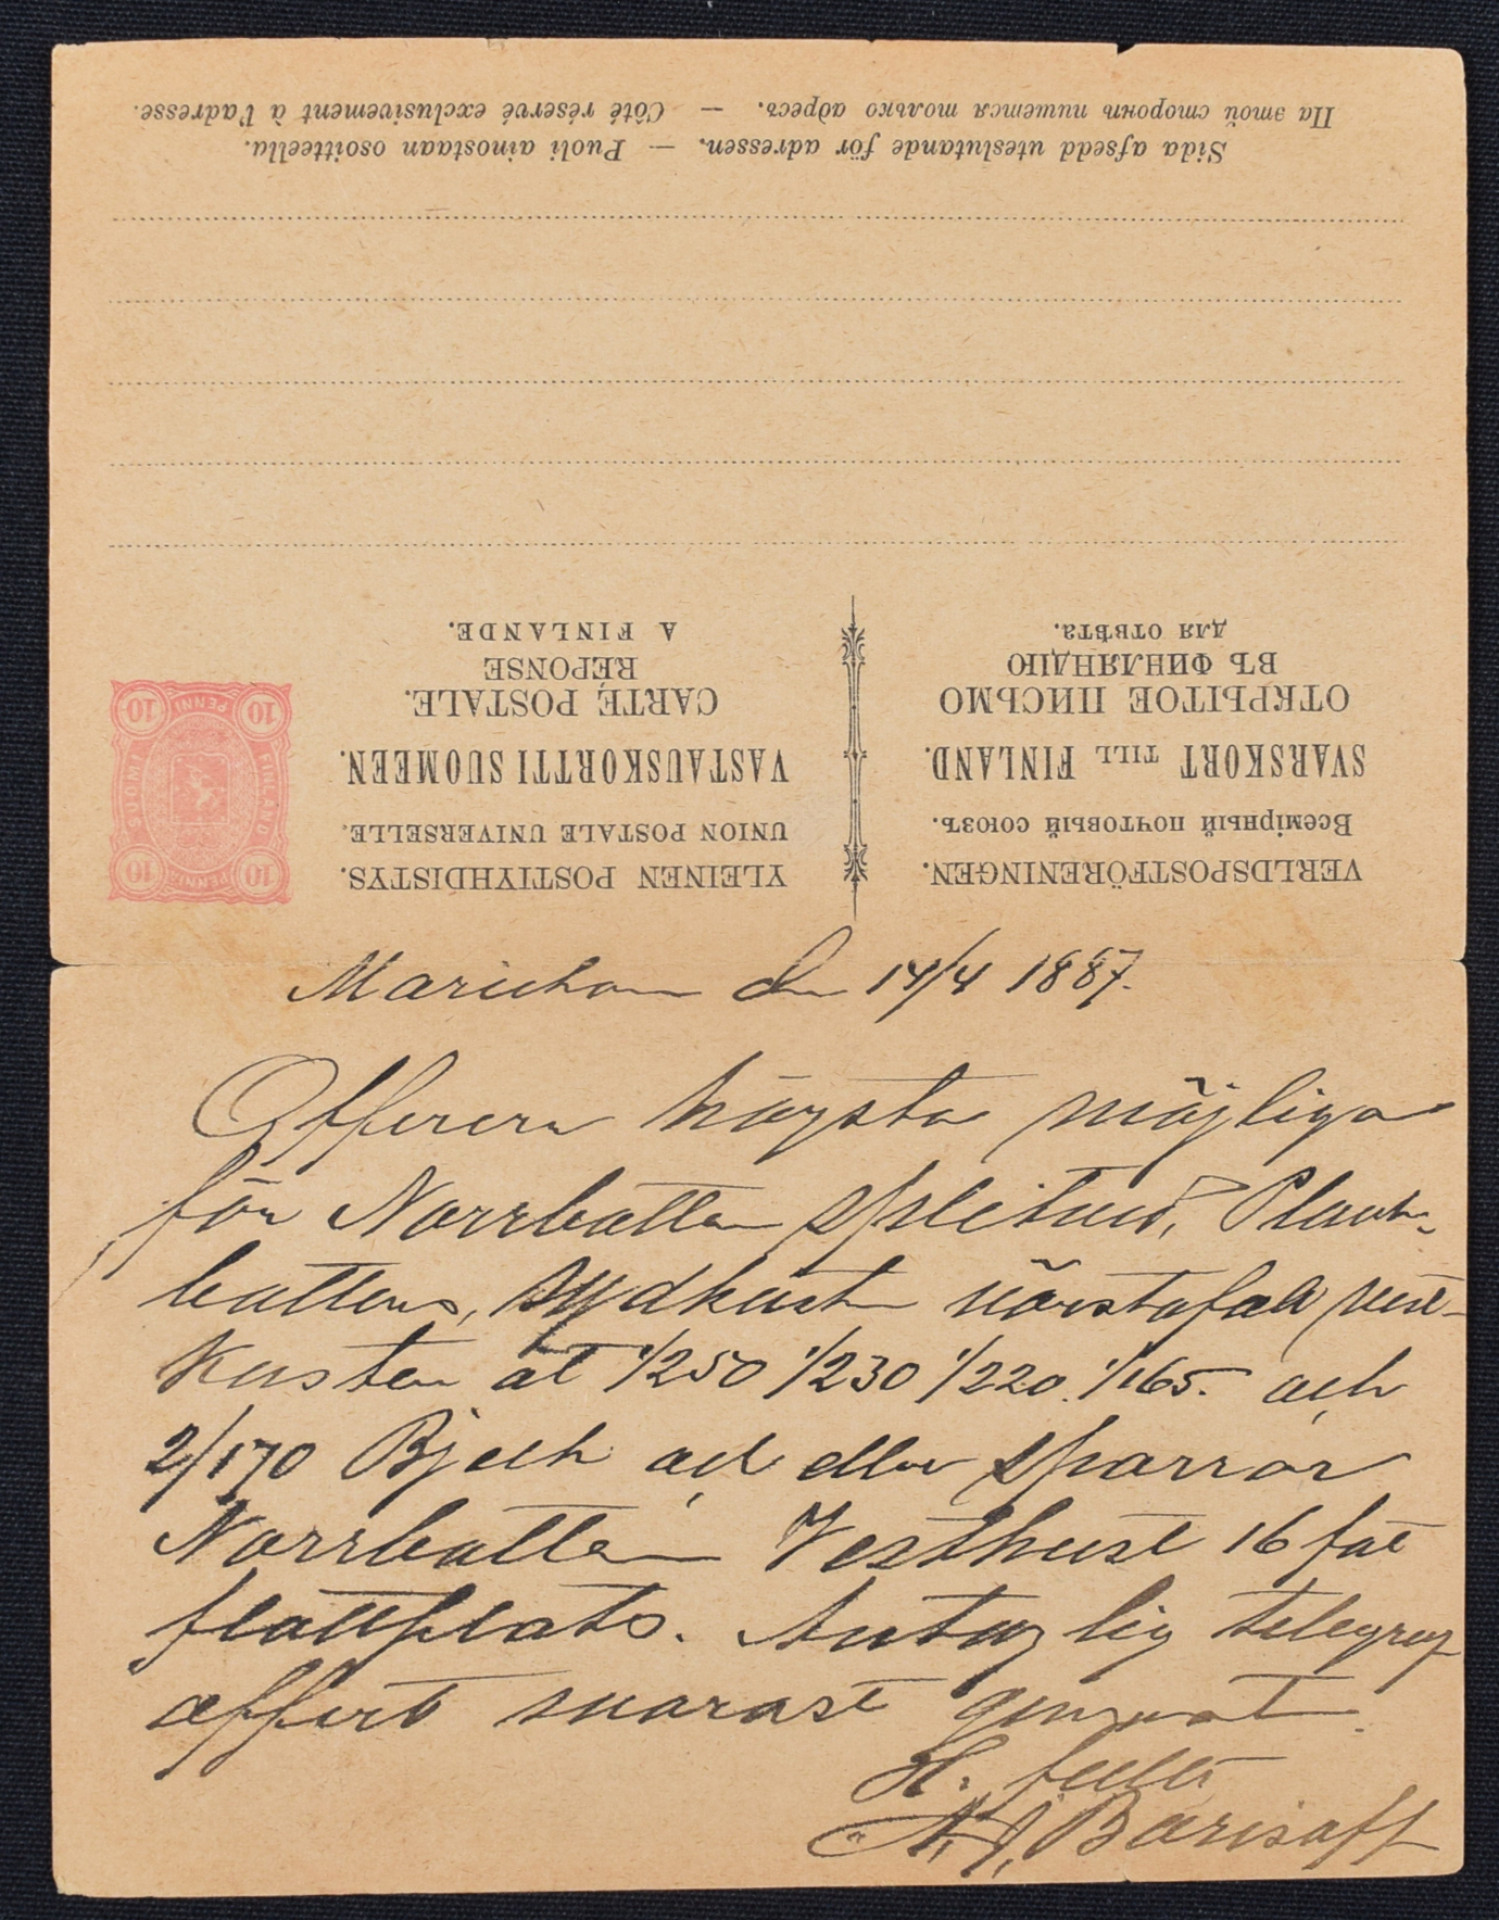 На этой сторонѣ пишется только адресъ. — Côté réservé exclusivement à l'adresse.
Sida afsedd uteslutande för adressen. — Puoli ainostaan osoitteella.
VERLDSPOSTFÖRENINGEN.
Всемірный почтовый союзъ.
SVARSKORT TILL FINLAND.
ОТКРЫТОЕ ПИСЬМО
ВЪ ФИНЛЯНДІЮ
для отвѣта.
YLEINEN POSTIYHDISTYS.
UNION POSTALE UNIVERSELLE.
VASTAUSKORTTI SUOMEEN.
CARTE POSTALE.
RÉPONSE
A FINLANDE.
10 PENNIÄ 10
SUOMI FINLAND
10 PENNI 10
Mariehamn den 14/4 1887.
Offerera högsta möjliga
för Norrbotten splitved, Plank-
battens, sydkust
kusten at 1/250 1/230 1/220. 1/165. och
2/170 Bjelk och eller sparrar
Norrbotten 16 fot
plattplats. Antaglig telegraf
offert snarast
H. fullt
A. J. Barisoff